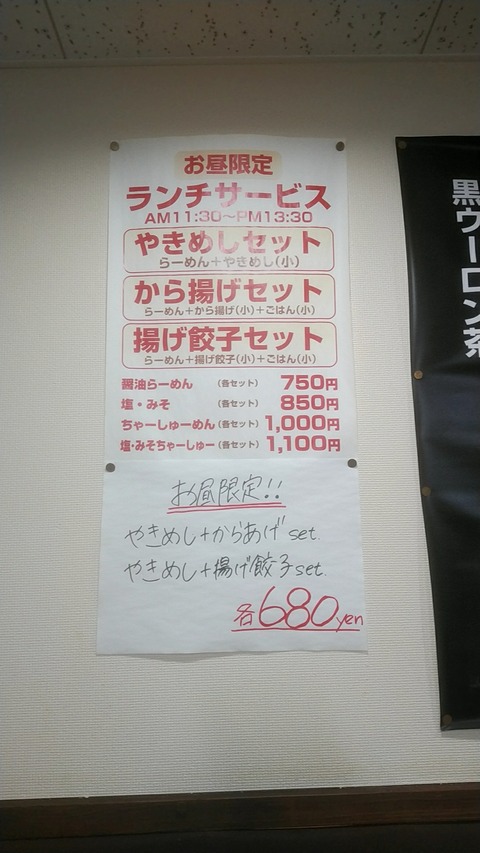 お昼限定
ランチサービス
AM11:30〜PM13:30
やきめしセット
らーめん+やきめし(小)
から揚げセット
らーめん+から揚げ(小)+ごはん(小)
揚げ餃子セット
らーめん+揚げ餃子(小)+ごはん(小)
醤油らーめん (各セット) 750円
塩・みそ (各セット) 850円
ちゃーしゅーめん (各セット) 1,000円
塩・みそちゃーしゅー (各セット) 1,100円
お昼限定!!
やきめし+からあげ set.
やきめし+揚げ餃子 set.
各680yen
黒ウーロン茶